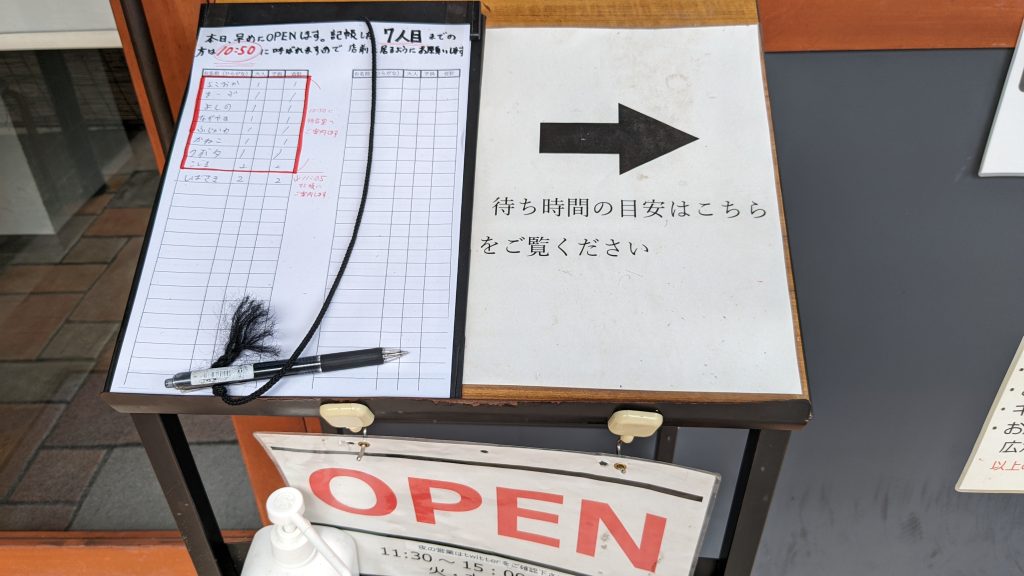 本日、早めにOPENします。記帳した 7人目までの
方は 10:50 に呼ばれますので 店前に居るようにお願いします
お名前(ひらがな) 大人 子供 合計
お名前(ひらがな) 大人 子供 合計
よこおか 1 1
まーぶ 1 1
よしの 1 1
ながやま 1 1
ふじかわ 1 1
かねこ 1 1
2 2
2 2
11:05
ご案内します
ご案内します
待ち時間の目安はこちら
をご覧ください
OPEN
夜の営業はtwitterをご確認下さ
11:30～15:00
火・
・お
広
以上